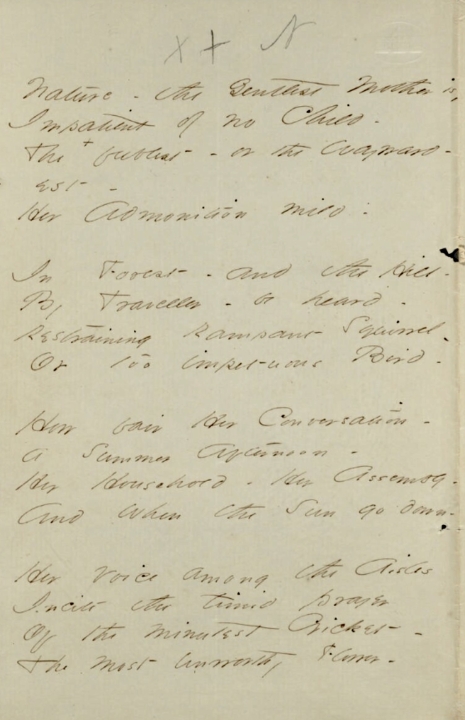 x + N
Nature - the Gentlest Mother is,
Impatient of no Child -
The + feeblest - or the Wayward-
est -
Her Admonition mild -
In Forest - and the Hill -
By Traveller - be heard -
Restraining Rampant Squirrel -
Or too impetuous Bird -
How fair Her Conversation -
A Summer Afternoon -
Her Household - Her Assembly -
And when the Sun go down -
Her Voice among the Aisles
Incite the timid prayer
Of the minutest Cricket -
The most unworthy Flower -